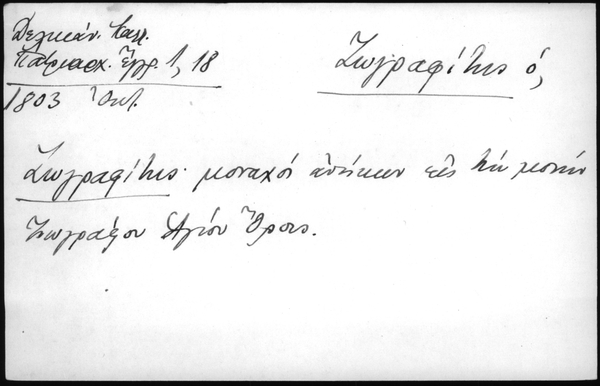 Δελικάν. Καλλ.
Πατριαρχ. Ἔγγρ. 1, 18
1803 Ὀκτ.
Ζωγραφίτης ὁ,
Ζωγραφίτης· μοναχοί ἀνήκων εἰς τήν μονήν
Ζωγράφου Ἁγίου Ὄρους.